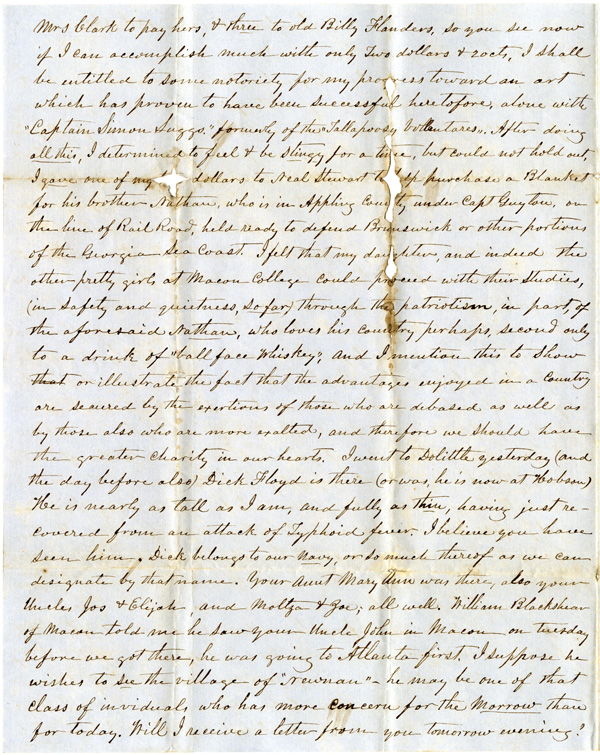 Mrs Clark to pay hers, & three to old Billy Flanders, so you see now
if I can accomplish much with only two dollars & 20cts, I shall
be entitled to some notoriety for my progress toward an art
which has proven to have been successful heretofore, alone with
"Captain Simon Suggs." formerly of the "Tallapoosy Vollantares". After doing
all this, I determined to feel & be stingy for a time, but could not hold out,
I gave one of my dollars to Neal Stewart to help purchase a Blanket
for his brother Nathan, who is in Appling County under Capt Guyton, on
the line of Rail Road, held ready to defend Brunswick or other portions
of the Georgia Sea Coast. I felt that my daughter, and indeed the
other pretty girls at Macon College could proceed with their studies,
(in safety and quietness, so far) through the patriotism, in part, of
the aforesaid Nathan, who loves his country perhaps, second only
to a drink of "ball face Whiskey", and I mention this to show
that or illustrate the fact that the advantages enjoyed in a Country
are secured by the exertions of those who are debased as well as
by those also who are more exalted, and therefore we should have
the greater charity in our hearts. I went to Dolittle yesterday (and
the day before also) Dick Floyd is there (or was, he is now at Hobson)
He is nearly as tall as I am, and fully as thin, having just re-
covered from an attack of Typhoid fever. I believe you have
seen him. Dick belongs to our navy, or so much thereof as we can
designate by that name. Your Aunt Mary Ann was there, also your
Uncles Jos & Elijah, and Moltza & Zoe; all well. William Blackshear
of Macon told me he saw your Uncle John in Macon on tuesday
before we got there, he was going to Atlanta first. I suppose he
wishes to see the village of "Newnan" - he may be one of that
class of inviduals who has more concern for the Morrow than
for today. Will I receive a letter from you tomorrow evening?